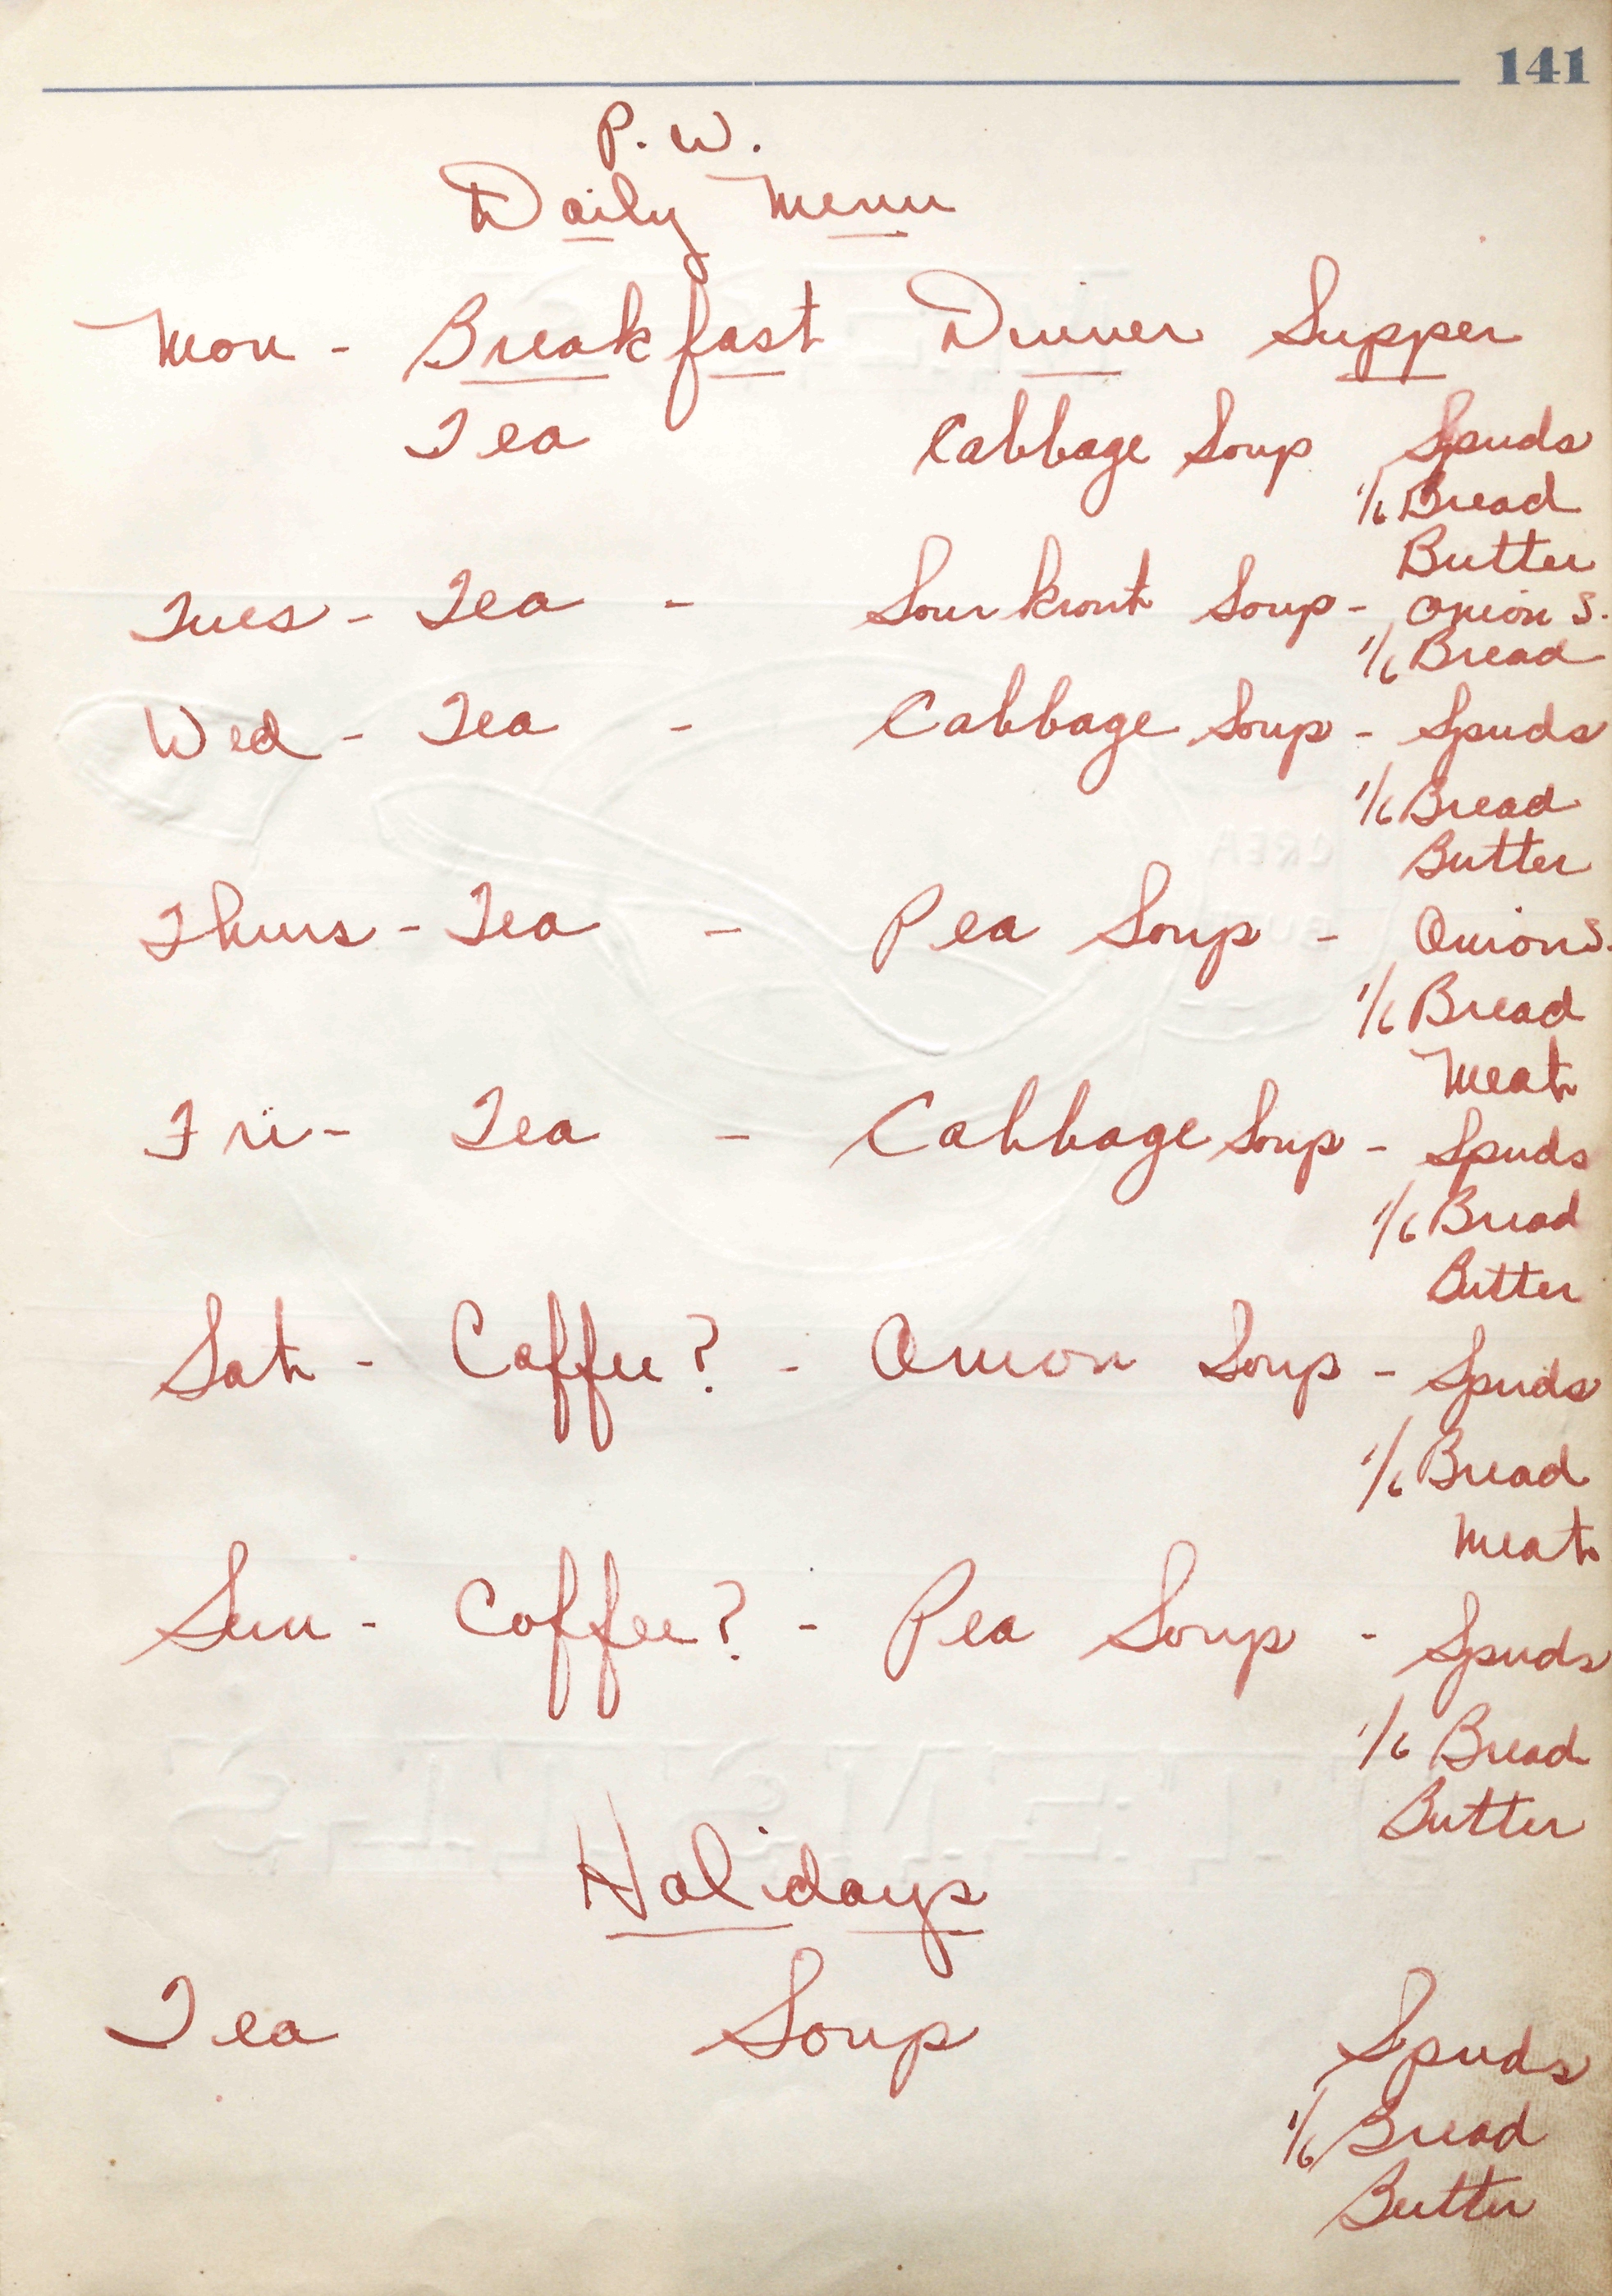 141
P. W.
Daily Menu
Mon - Breakfast Dinner Supper
Tea Cabbage Soup Spuds
1/6 Bread
Butter
Tues - Tea - Sour krout Soup - Onion S.
1/6 Bread
Wed - Tea - Cabbage Soup - Spuds
1/6 Bread
Butter
Thurs - Tea - Pea Soup - Onion S.
1/6 Bread
Meat
Fri - Tea - Cabbage Soup - Spuds
1/6 Bread
Butter
Sat - Coffee? - Onion Soup - Spuds
1/6 Bread
Meat
Sun - Coffee? - Pea Soup - Spuds
1/6 Bread
Butter
Holidays
Tea Soup Spuds
1/6 Bread
Butter